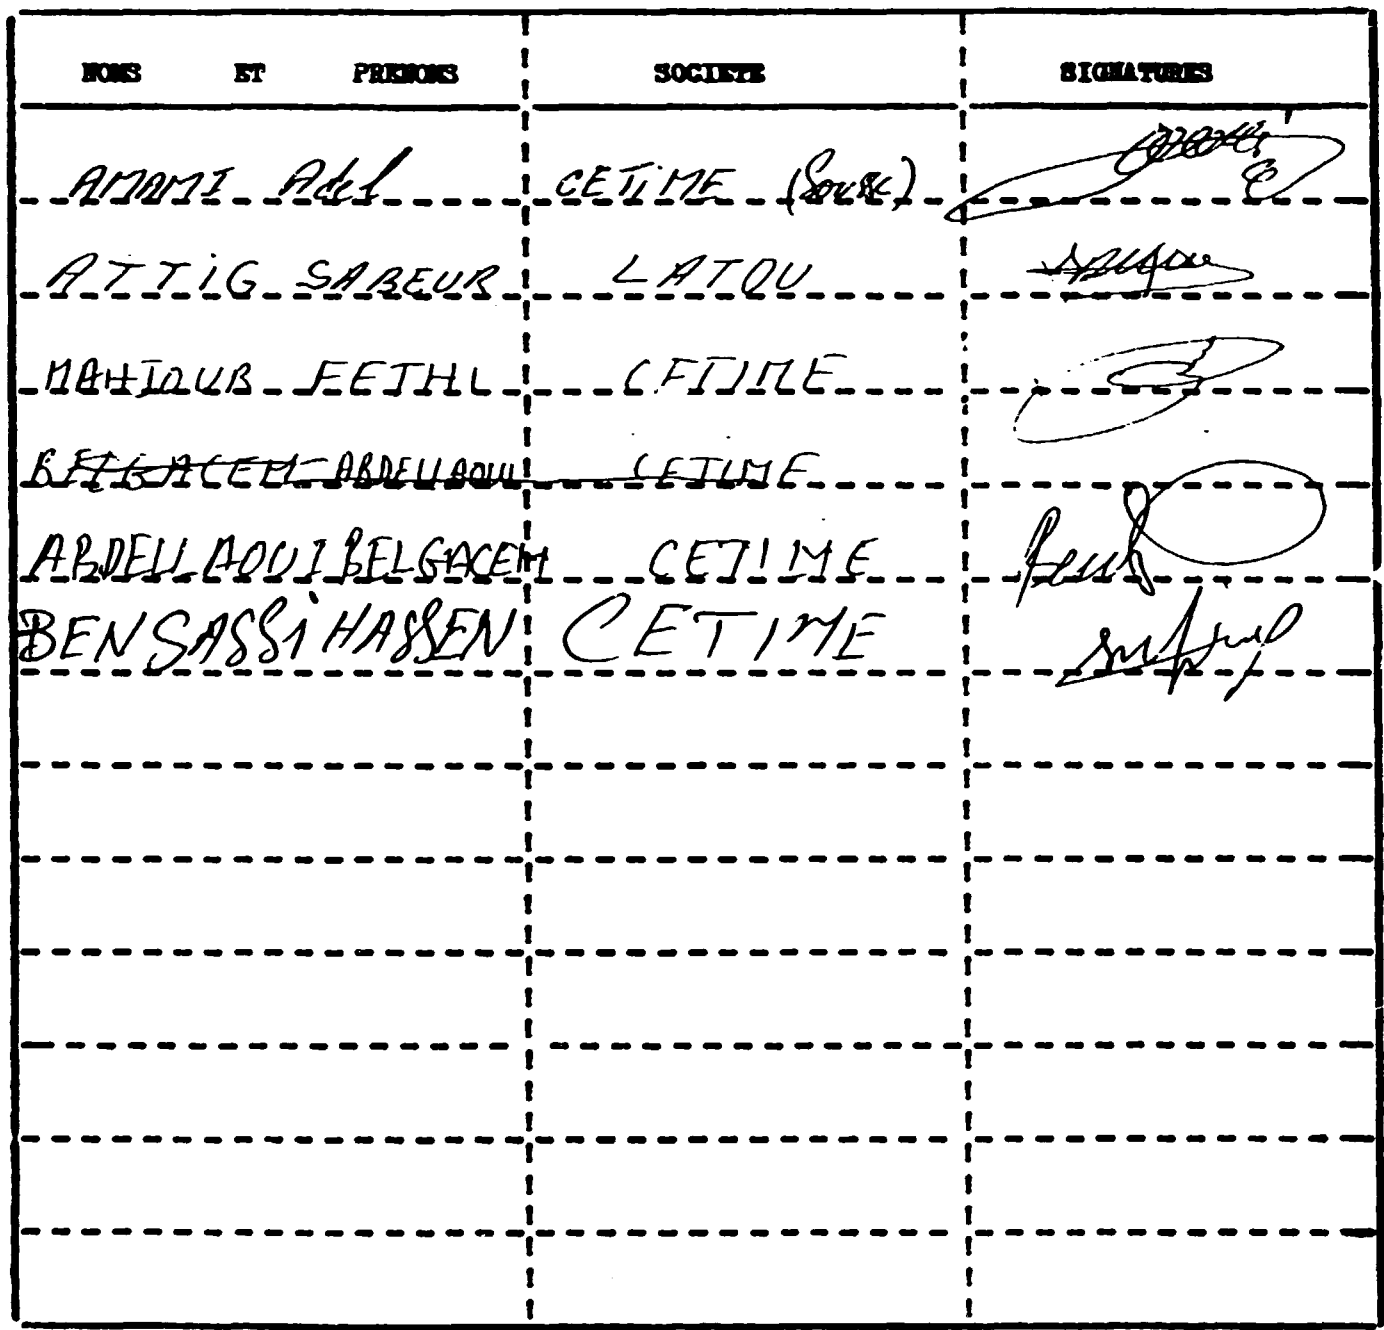 NOMS ET PRENOMS SOCIETE SIGNATURES
AMAMI Adel CETIME (Sousse)
ATTIG SABEUR LATOU
MAHJOUB FETHI CETIME
BELGACEM ABDELLAOUI CETIME
ABDELLAOUI BELGACEM CETIME
BEN SASSI HASSEN CETIME